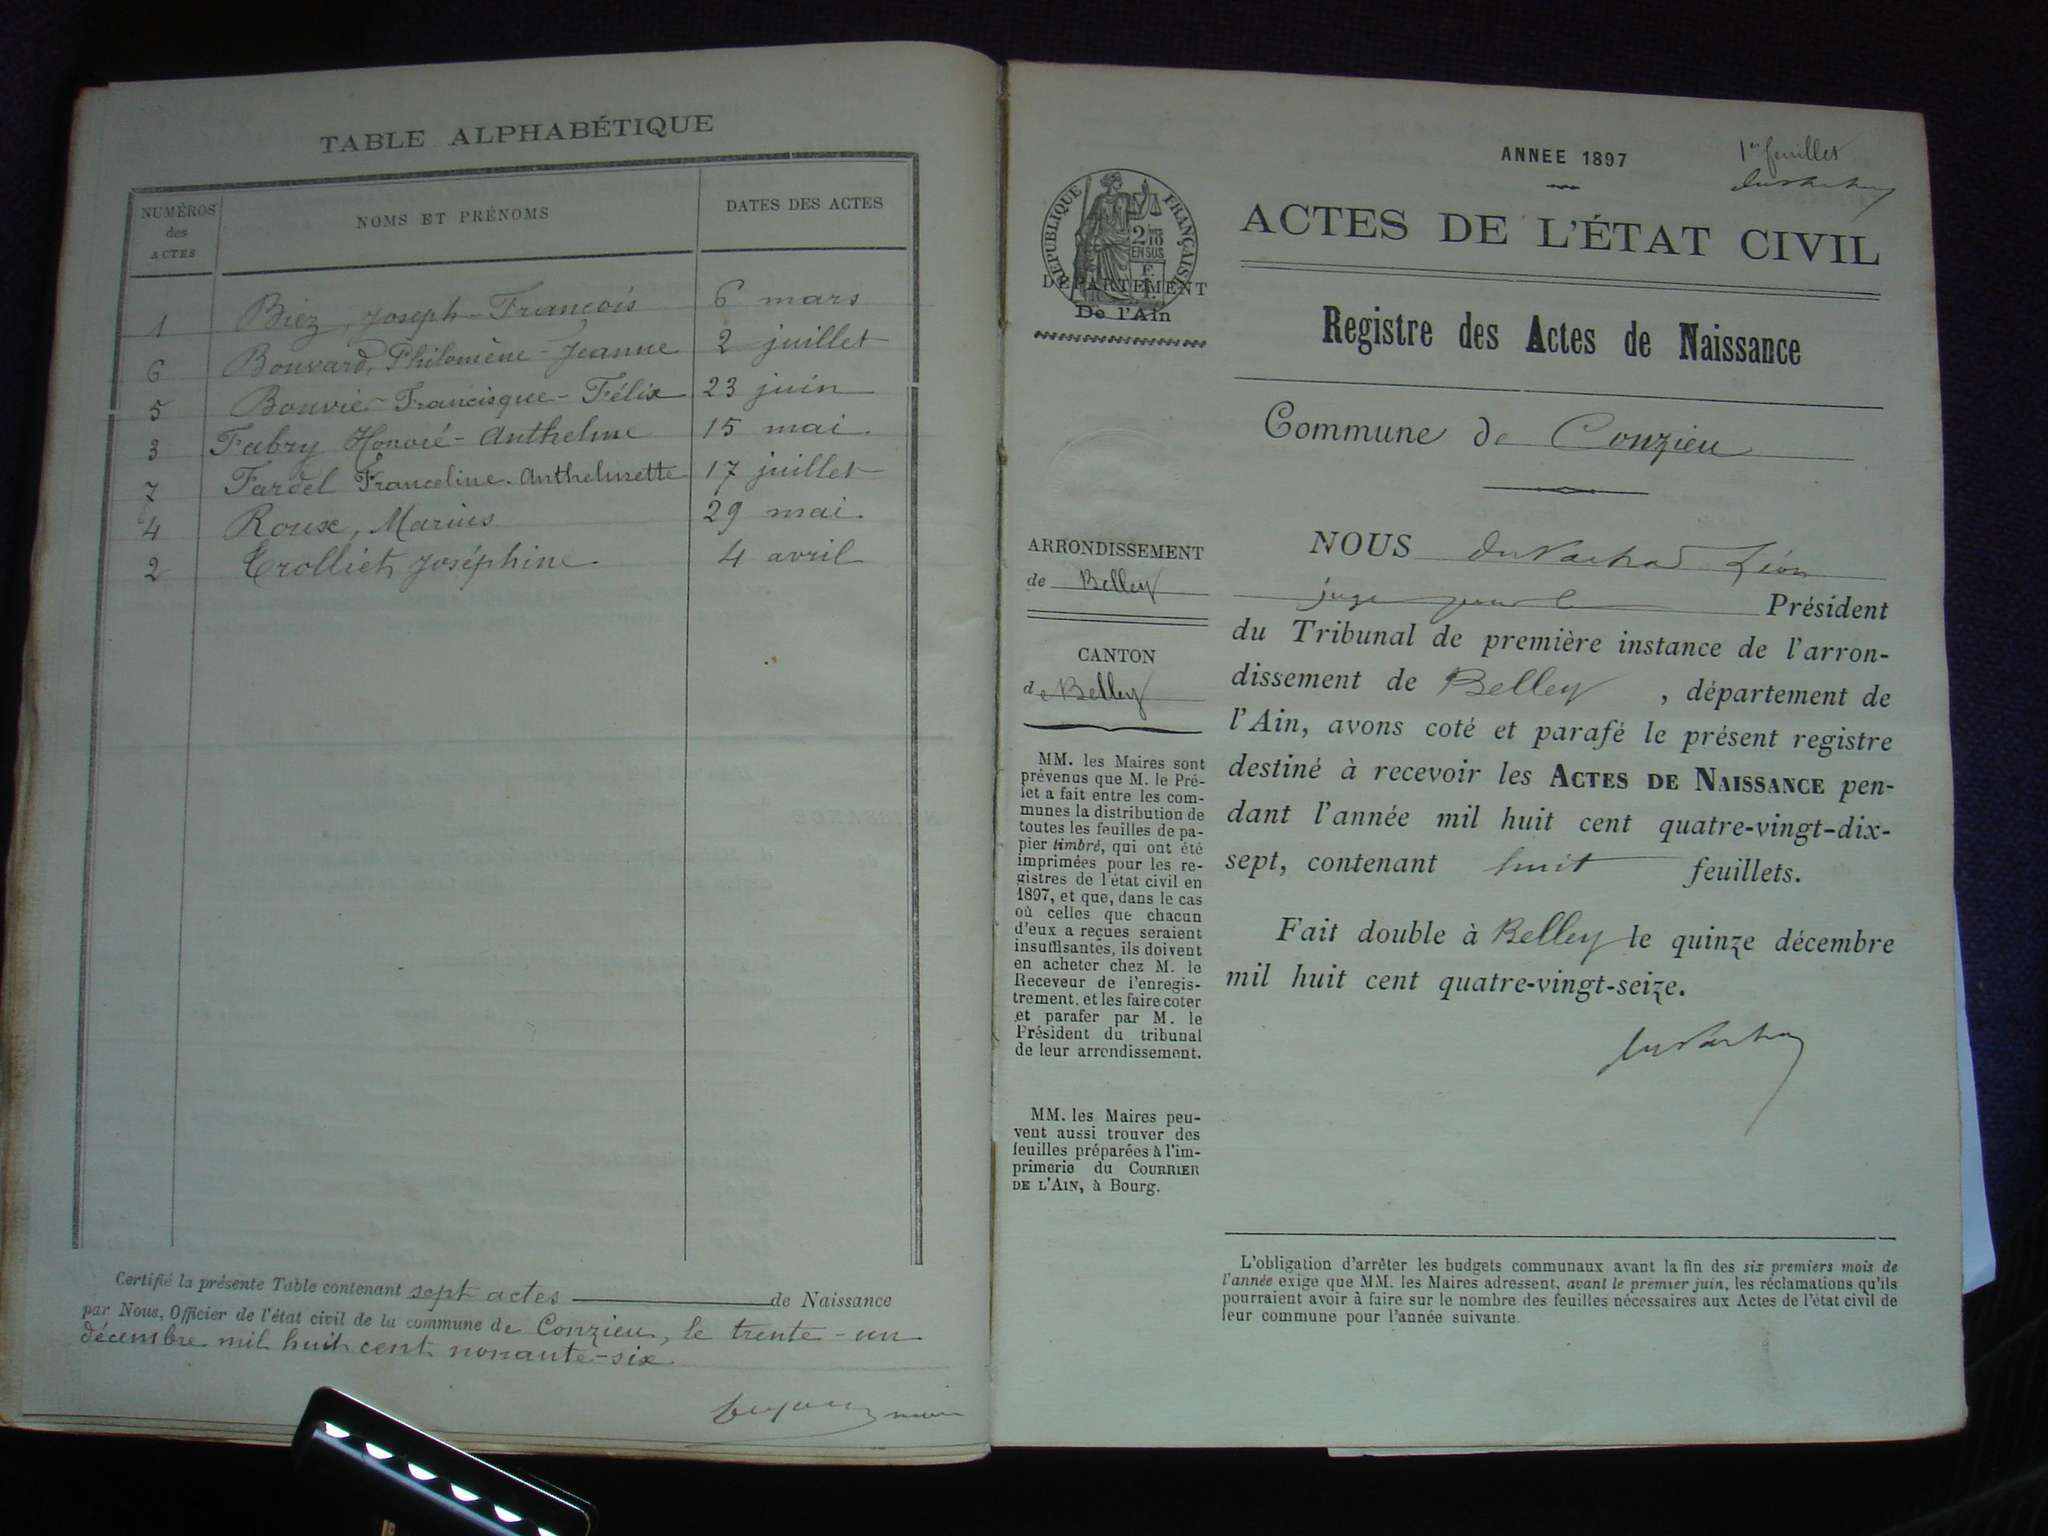 TABLE ALPHABÉTIQUE
NUMÉROS
des
ACTES
NOMS ET PRÉNOMS
DATES DES ACTES
1 Biez, Joseph-François 6 mars
6 Bouvard, Philomène-Jeanne 2 juillet
5 Bouvier Francisque-Félix 23 juin
3 Fabry Honoré-Anthelme 15 mai.
7 Fardel Franceline-Anthelmette 17 juillet
4 Roux, Marius 29 mai.
2 Trolliet, Joséphine 4 avril
Certifié la présente Table contenant sept actes de Naissance
par Nous, Officier de l'état civil de la commune de Conzieu, le trente-un
décembre mil huit cent nonante-six
ANNEE 1897
1er feuillet
RÉPUBLIQUE FRANÇAISE
2/10
EN SUS
DÉPARTEMENT
De l'Ain
ACTES DE L'ÉTAT CIVIL
Registre des Actes de Naissance
Commune de Conzieu
ARRONDISSEMENT
de Belley
CANTON
de Belley
MM. les Maires sont
prévenus que M. le Pré-
fet a fait entre les com-
munes la distribution de
toutes les feuilles de pa-
pier timbré, qui ont été
imprimées pour les re-
gistres de l'état civil en
1897, et que, dans le cas
où celles que chacun
d'eux a reçues seraient
insuffisantes, ils doivent
en acheter chez M. le
Receveur de l'enregis-
trement, et les faire coter
et parafer par M. le
Président du tribunal
de leur arrondissement.
MM. les Maires peu-
vent aussi trouver des
feuilles préparées à l'im-
primerie du COURRIER
DE L'AIN, à Bourg.
NOUS Léon
juge pour le Président
du Tribunal de première instance de l'arron-
dissement de Belley, département de
l'Ain, avons coté et parafé le présent registre
destiné à recevoir les ACTES DE NAISSANCE pen-
dant l'année mil huit cent quatre-vingt-dix-
sept, contenant huit feuillets.
Fait double à Belley le quinze décembre
mil huit cent quatre-vingt-seize.
L'obligation d'arrêter les budgets communaux avant la fin des six premiers mois de
l'année exige que MM. les Maires adressent, avant le premier juin, les réclamations qu'ils
pourraient avoir à faire sur le nombre des feuilles nécessaires aux Actes de l'état civil de
leur commune pour l'année suivante.